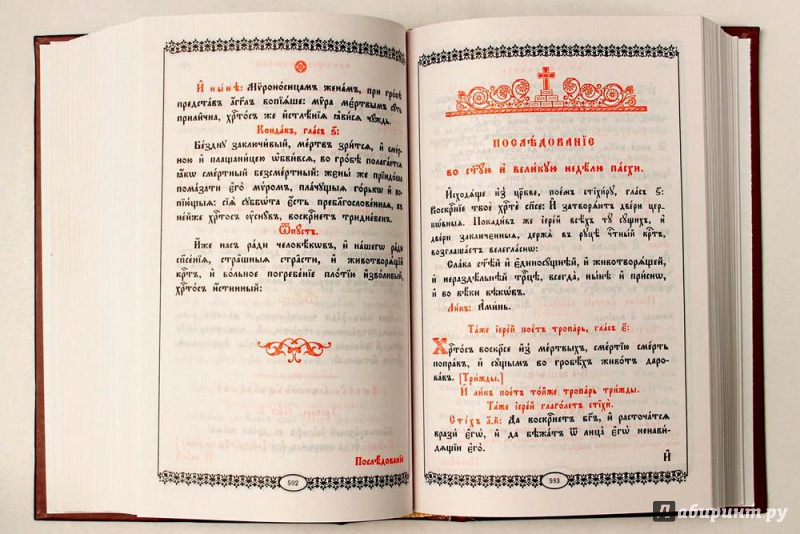 И҆ ны́нѣ: Мѷроно́сицамъ жена́мъ, при гро́бѣ
предста́въ а҆́гг҃лъ вопїѧ́ше: мѵ́ра мє́ртвымъ сꙋ́ть
прили́чна, хрⷭ҇то́съ же и҆стлѣ́нїѧ ꙗ҆ви́сѧ чꙋ́ждь.
Конда́къ, гла́съ ѕ҃:
Бе́зднꙋ заключи́вый, ме́ртвъ зри́тсѧ, и҆ смѵ́р-
ною и҆ плащани́цею ѡ҆бви́всѧ, во гро́бѣ полага́етсѧ
ꙗ҆́кѡ сме́ртный безсме́ртный: жєны́ же прїидо́ша
пома́зати є҆го̀ мѵ́ромъ, пла́чꙋщыѧ го́рькѡ и҆ во-
пїю́щыѧ: сїѧ̀ сꙋббѡ́та є҆́сть пребл҃гослове́ннаѧ, въ
не́йже хрⷭ҇то́съ ᲂу҆снꙋ́въ, воскрⷭ҇нетъ тридне́венъ.
Ѿпꙋ́стъ.
И҆́же на́съ ра́ди человѣ́кѡвъ, и҆ на́шегѡ ра́ди
спⷭ҇нїѧ, стра̑шныѧ стра̑сти, и҆ животворѧ́щїй
крⷭ҇тъ, и҆ во́льное погребе́нїе пло́тїю и҆зво́ливый,
хрⷭ҇то́съ и҆́стинный:
Послѣ́дованїе
592
ПОСЛѢ́ДОВАНЇЕ
во ст҃ꙋ́ю и҆ вели́кꙋю недѣ́лю па́схи.
И҆сходѧ́ще и҆з̾ це́ркве, пое́мъ стїхи́рꙋ, гла́съ ѕ҃:
Воскрⷭ҇нїе твоѐ хрⷭ҇тѐ сп҃се: И҆ затворѧ́тъ двє́ри цер-
кѡ́вныѧ. Покади́въ же і҆ере́й всѣ́хъ тꙋ̀ сꙋ́щихъ, и҆
двє́ри заключє́нныѧ, держа̀ въ рꙋцѣ̀ чⷭ҇тны́й крⷭ҇тъ,
возглаша́етъ велегла́снѡ:
Сла́ва ст҃ѣ́й и҆ є҆диносꙋ́щнѣй, и҆ животворѧ́щей,
и҆ нераздѣ́льнѣй трⷪ҇цѣ, всегда̀, ны́нѣ и҆ при́снѡ,
и҆ во вѣ́ки вѣкѡ́въ.
Ли́къ: А҆ми́нь.
Та́же і҆ере́й пое́тъ тропа́рь, гла́съ є҃:
Хрⷭ҇то́съ воскре́се и҆з̾ ме́ртвыхъ, сме́ртїю сме́рть
попра́въ, и҆ сꙋ́щымъ во гробѣ́хъ живо́тъ даро-
ва́въ. [Три́жды.]
И҆ ли́къ пое́тъ то́йже тропа́рь три́жды.
Та́же і҆ере́й глаго́летъ стїхѝ:
Сті́хъ а҃-й: Да воскрⷭ҇нетъ бг҃ъ, и҆ расточа́тсѧ
вразѝ є҆гѡ̀, и҆ да бѣжа́тъ ѿ лица̀ є҆гѡ̀ ненави́-
дѧщїи є҆го̀.
И҆
593
Лабиринт.ру